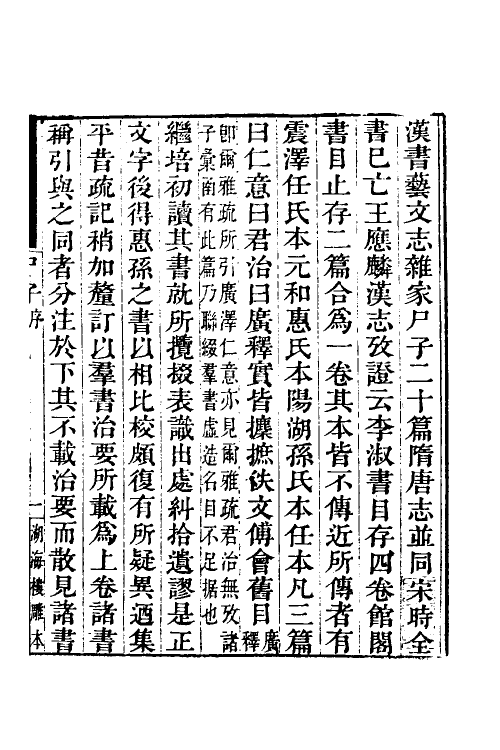 漢書藝文志雜家尸子二十篇隋唐志並同宋時全
書已亡王應麟漢志攷證云李淑書目存四卷館閣
書目止存二篇合爲一卷其本皆不傳近所傳者有
震澤任氏本元和惠氏本陽湖孫氏本任本凡三篇
曰仁意曰君治曰廣釋實皆攗摭佚文傅會舊目廣釋
卽爾雅疏所引廣澤仁意亦見爾雅疏君治無攷諸
子彙函有此篇乃聯綴羣書虛造名目不足據也
繼培初讀其書就所攬掇表識出處糾拾遺謬是正
文字後得惠孫之書以相比校頗復有所疑異迺集
平昔疏記稍加釐訂以羣書治要所載爲上卷諸書
稱引與之同者分注於下其不載治要而散見諸書
尸子序
一
湖海樓雕本